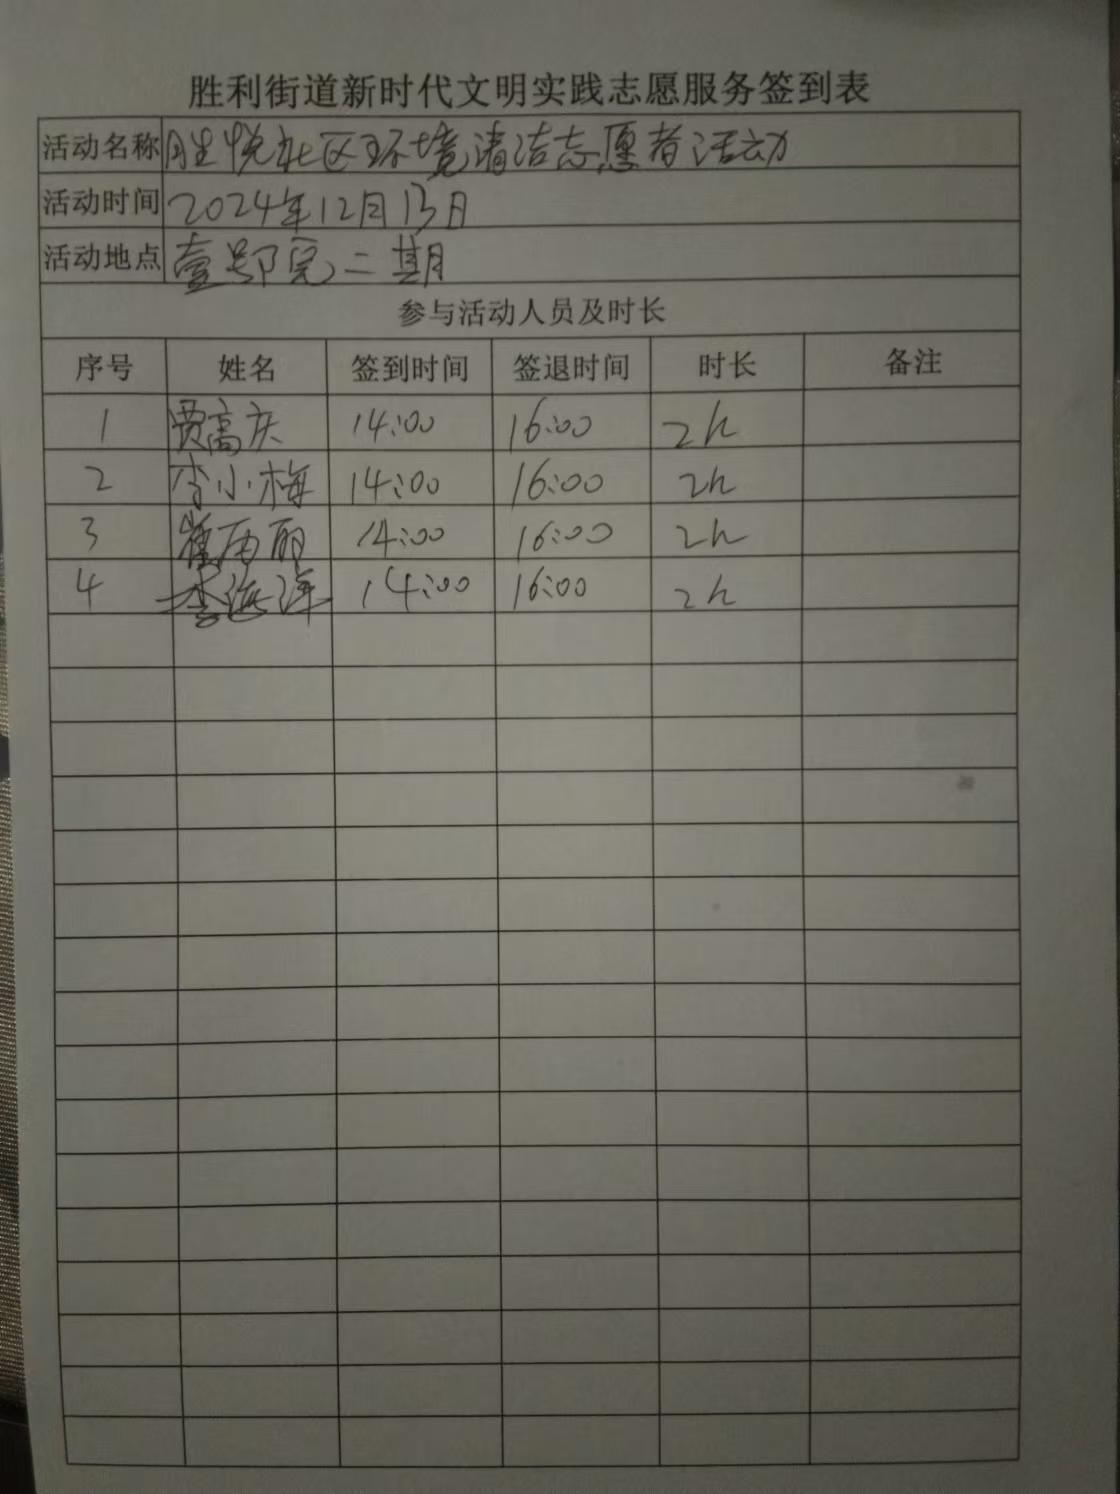 胜利街道新时代文明实践志愿服务签到表
活动名称 胜悦社区环境清洁志愿者活动
活动时间 2024年12月13日
活动地点 壹鄂宛二期
参与活动人员及时长
序号 姓名 签到时间 签退时间 时长 备注
1 贾高庆 14:00 16:00 2h
2 李小梅 14:00 16:00 2h
3 14:00 16:00 2h
4 李海洋 14:00 16:00 2h